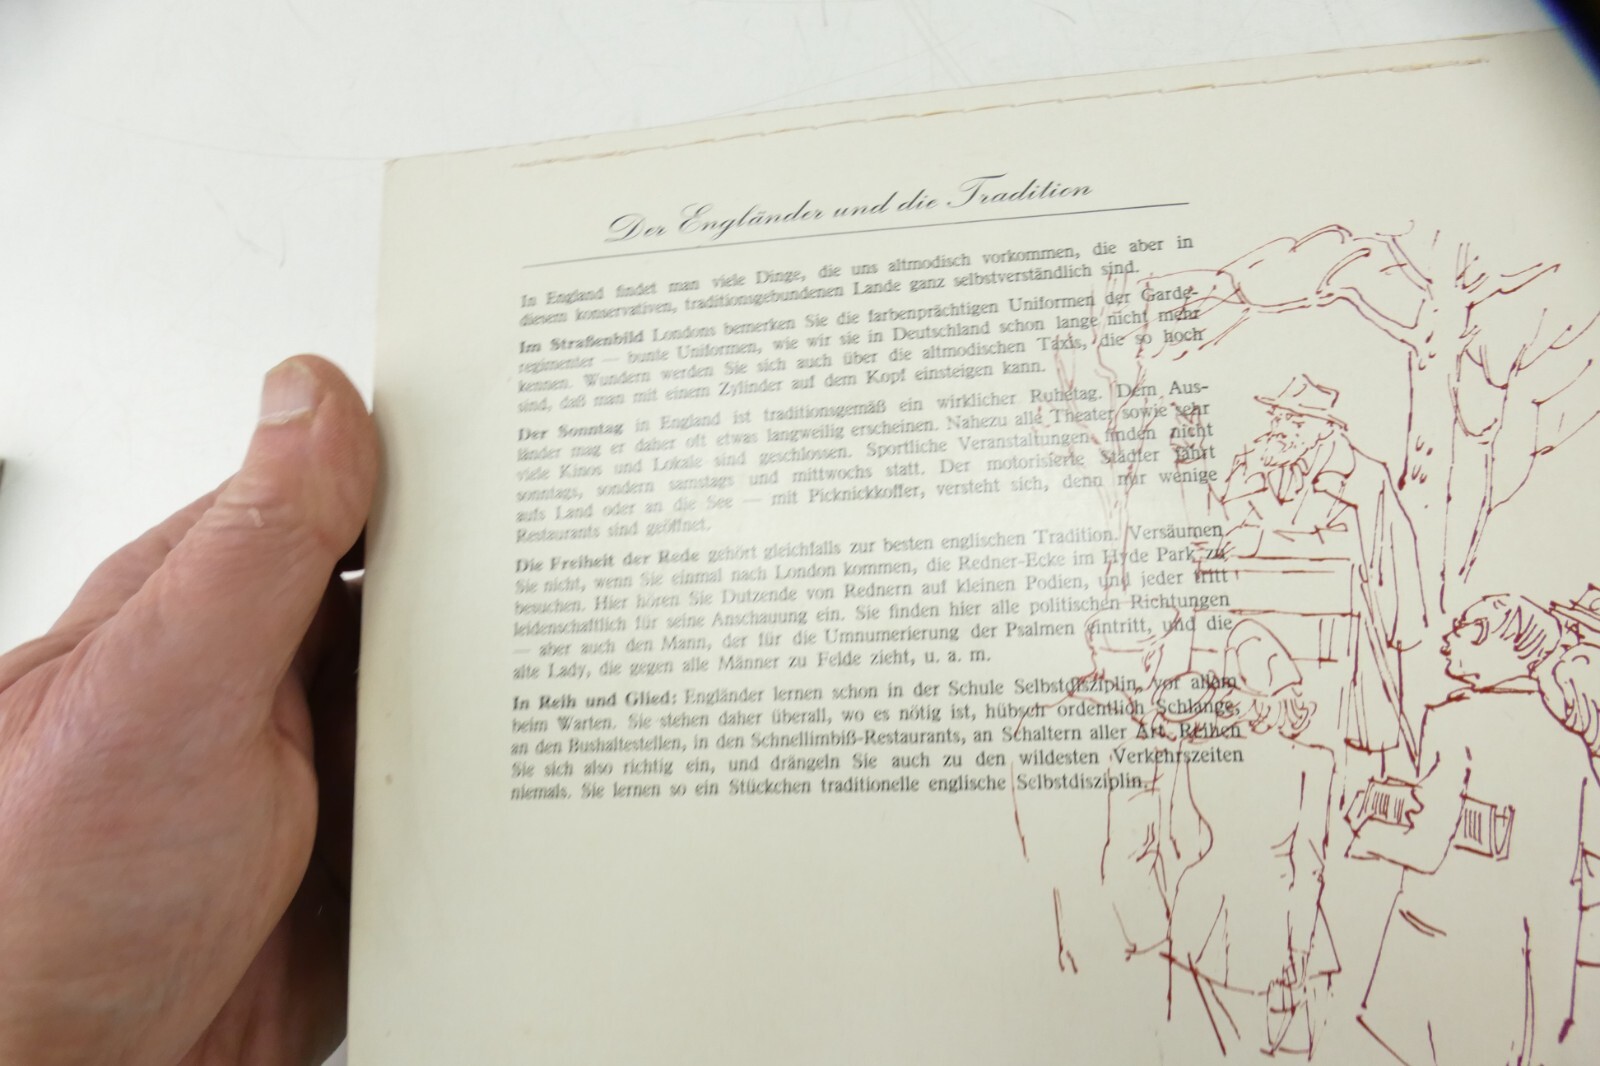 Der Engländer und die Tradition
In England findet man viele Dinge, die uns altmodisch vorkommen, die aber in
diesem konservativen, traditionsgebundenen Lande ganz selbstverständlich sind.
Im Straßenbild Londons bemerken Sie die farbenprächtigen Uniformen der Garde-
regimenter — bunte Uniformen, wie wir sie in Deutschland schon lange nicht mehr
kennen. Wundern werden Sie sich auch über die altmodischen Taxis, die so hoch
sind, daß man mit einem Zylinder auf dem Kopf einsteigen kann.
Der Sonntag in England ist traditionsgemäß ein wirklicher Ruhetag. Dem Aus-
länder mag er daher oft etwas langweilig erscheinen. Nahezu alle Theater sowie sehr
viele Kinos und Lokale sind geschlossen. Sportliche Veranstaltungen finden nicht
sonntags, sondern samstags und mittwochs statt. Der motorisierte Städter fährt
aufs Land oder an die See — mit Picknickkoffer, versteht sich, denn nur wenige
Restaurants sind geöffnet.
Die Freiheit der Rede gehört gleichfalls zur besten englischen Tradition. Versäumen
Sie nicht, wenn Sie einmal nach London kommen, die Redner-Ecke im Hyde Park zu
besuchen. Hier hören Sie Dutzende von Rednern auf kleinen Podien, und jeder tritt
leidenschaftlich für seine Anschauung ein. Sie finden hier alle politischen Richtungen
— aber auch den Mann, der für die Umnumerierung der Psalmen eintritt, und die
alte Lady, die gegen alle Männer zu Felde zieht, u. a. m.
In Reih und Glied: Engländer lernen schon in der Schule Selbstdisziplin, vor allem
beim Warten. Sie stehen daher überall, wo es nötig ist, hübsch ordentlich Schlange,
an den Bushaltestellen, in den Schnellimbiß-Restaurants, an Schaltern aller Art. Reihen
Sie sich also richtig ein, und drängeln Sie auch zu den wildesten Verkehrszeiten
niemals. Sie lernen so ein Stückchen traditionelle englische Selbstdisziplin.